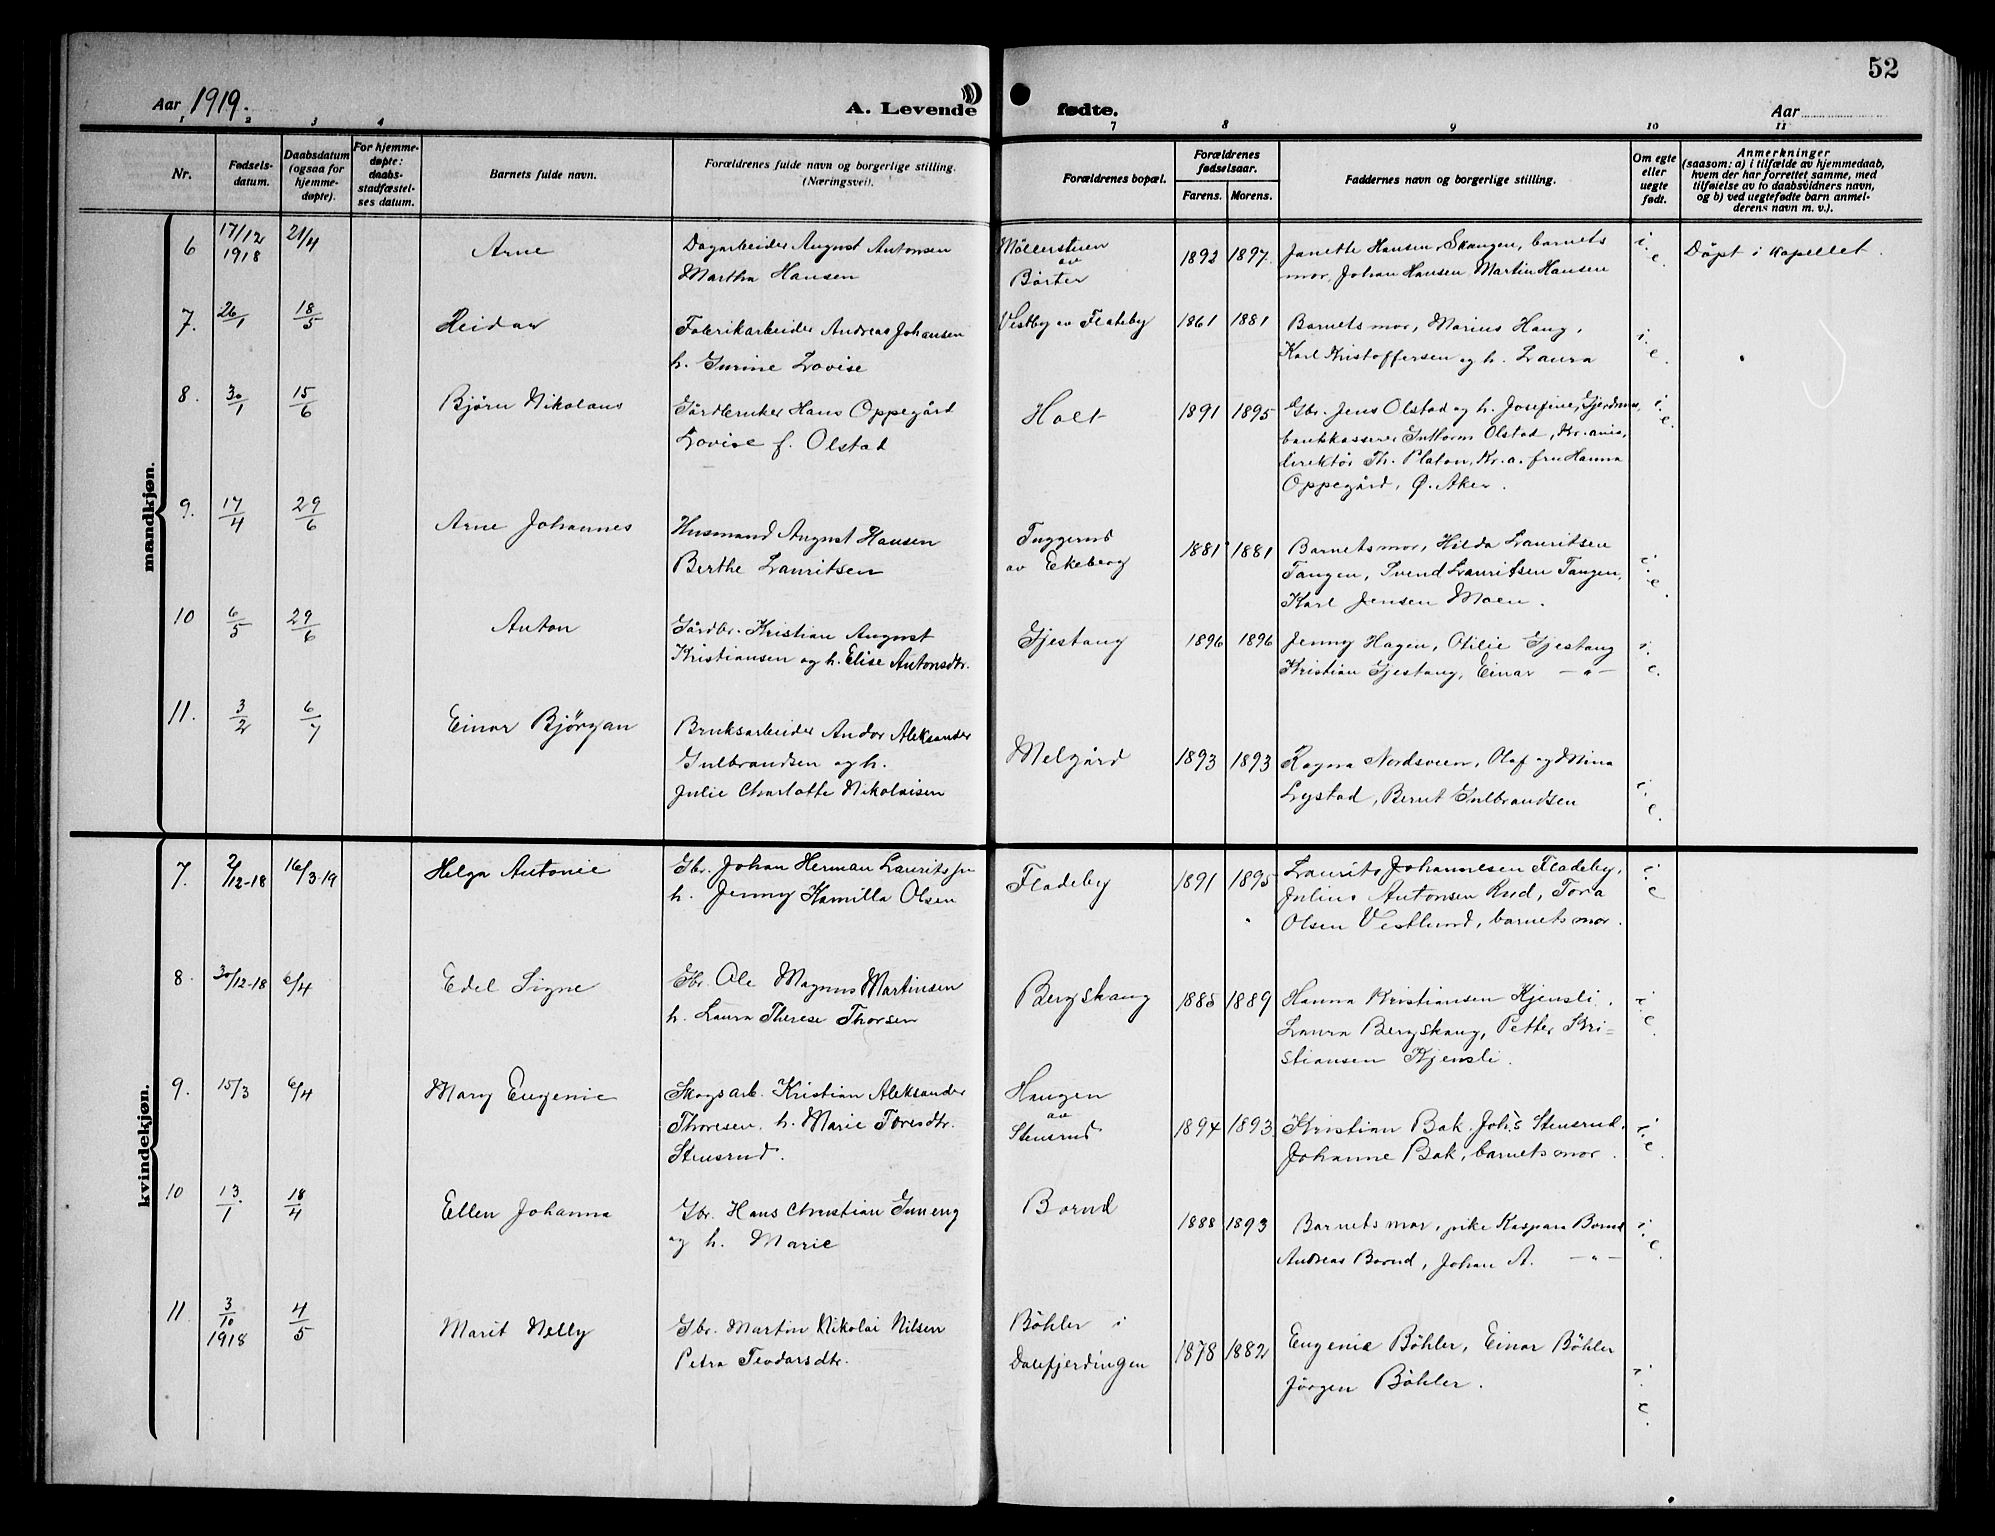 52
Aar 1919.
A. Levende fødte.
Aar
1 2 3 4 7 8 9 10 11
Nr.
Fødsels-
datum.
Daabsdatum
(ogsaa for
hjemme-
døpte).
For hjemme-
døpte:
daabs-
stadfæstel-
ses datum.
Barnets fulde navn.
Forældrenes fulde navn og borgerlige stilling.
(Næringsvei).
Forældrenes bopæl.
Forældrenes
fødselsaar.
Farens. Morens.
Faddernes navn og borgerlige stilling.
Om egte
eller
uegte
født.
Anmerkninger
(saasom: a) i tilfælde av hjemmedaab,
hvem der har forrettet samme, med
tilføielse av to daabsvidners navn,
og b) ved uegtefødte barn anmel-
derens navn m. v.).
mandkjøn.
6 17/12 1918 21/4 Arne
Dagarbeider August Antonsen
Martha Hansen
Möllerstuen
av
Börter
1892 1897
Janette Hansen, Skangen, barnets
mor, Johan Hansen Martin Hansen
i. e.
Döpt i kapellet.
7. 26/1 18/5 Reidar
Fabrikarbeider Andreas Johansen
h. Gurine Lovise
Vestby av Fladeby
1861 1881
Barnets mor, Marius Haug,
Karl Kristoffersen og h. Laura
i. e.
8. 30/1 15/6 Björn Nikolaus
Gårdbruker Hans Oppegård
Lovise f. Olstad
Holt
1891 1895
Gbr. Jens Olstad og h. Josefine, Gjerdrum,
bankkasserer Guttorm Olstad, Kr.ania,
direktör Th. Platou, Kr.a. fru Hanna
Oppegård, Ø. Aker.
i. e.
9. 17/4 29/6 Arne Johannes
Husmand August Hansen
Berthe Lauritsen
Tuggerud
av Ekeberg
1881 1881
Barnets mor, Hilda Lauritsen
Tangen, Svend Lauritsen Tangen,
Karl Jensen Moen.
i. e.
10 6/5 29/6 Anton
Gårdbr. Kristian August
Kristiansen og h. Elise Antonsdtr.
Gjestang
1896 1896
Jenny Hagen, Otilie Gjestang
Kristian Gjestang, Einar — " —
i. e.
11. 3/2 6/7 Einar Björgan
Bruksarbeider Andor Aleksander
Gulbrandsen og h.
Julie Charlotte Nikolaisen
Melgård
1893 1893
Ragna Nordsveen, Olaf og Mina
Lystad, Bernt Gulbrandsen
i. e.
kvindekjøn.
7. 2/12-18 16/3-19 Helga Antonie
Gbr. Johan Herman Lauritssen
h. Jenny Kamilla Olsen
Fladeby
1891 1895
Laurits Johannesen Fladeby,
Julius Antonsen Rud, Tora
Olsen Vestlund, barnets mor.
i. e
8. 30/12-18 6/4 Edel Signe
Gbr Ole Magnus Martinsen
h. Laura Therese Thorsen
Bergskaug
1885 1889
Hanna Kristiansen Kjensli,
Laura Bergskaug, Petter Kri=
stiansen Kjensli.
i. e.
9. 15/3 6/4 Mary Eugenie
Skogsarb. Kristian Aleksander
Thoresen. h. Marie Toresdtr.
Stensrud.
Haugen
av
Stensrud
1894 1893
Kristian Bak. Johs Stensrud,
Johanne Bak, barnets mor.
i. e.
10 13/1 18/4 Ellen Johanna
Gbr. Hans Christian Guneng
og h. Marie
Borud
1888 1893
Barnets mor, pike Kaspara Borud
Andreas Borud, Johan A. — " —
i. e.
11 3/10 1918 4/5 Marit Nelly
Gbr. Martin Nikolai Nilsen
Petra Teodorsdtr.
Böhler i
Dalefjerdingen
1878 1882
Eugenie Böhler, Einar Böhler
Jörgen Böhler.
i. e.